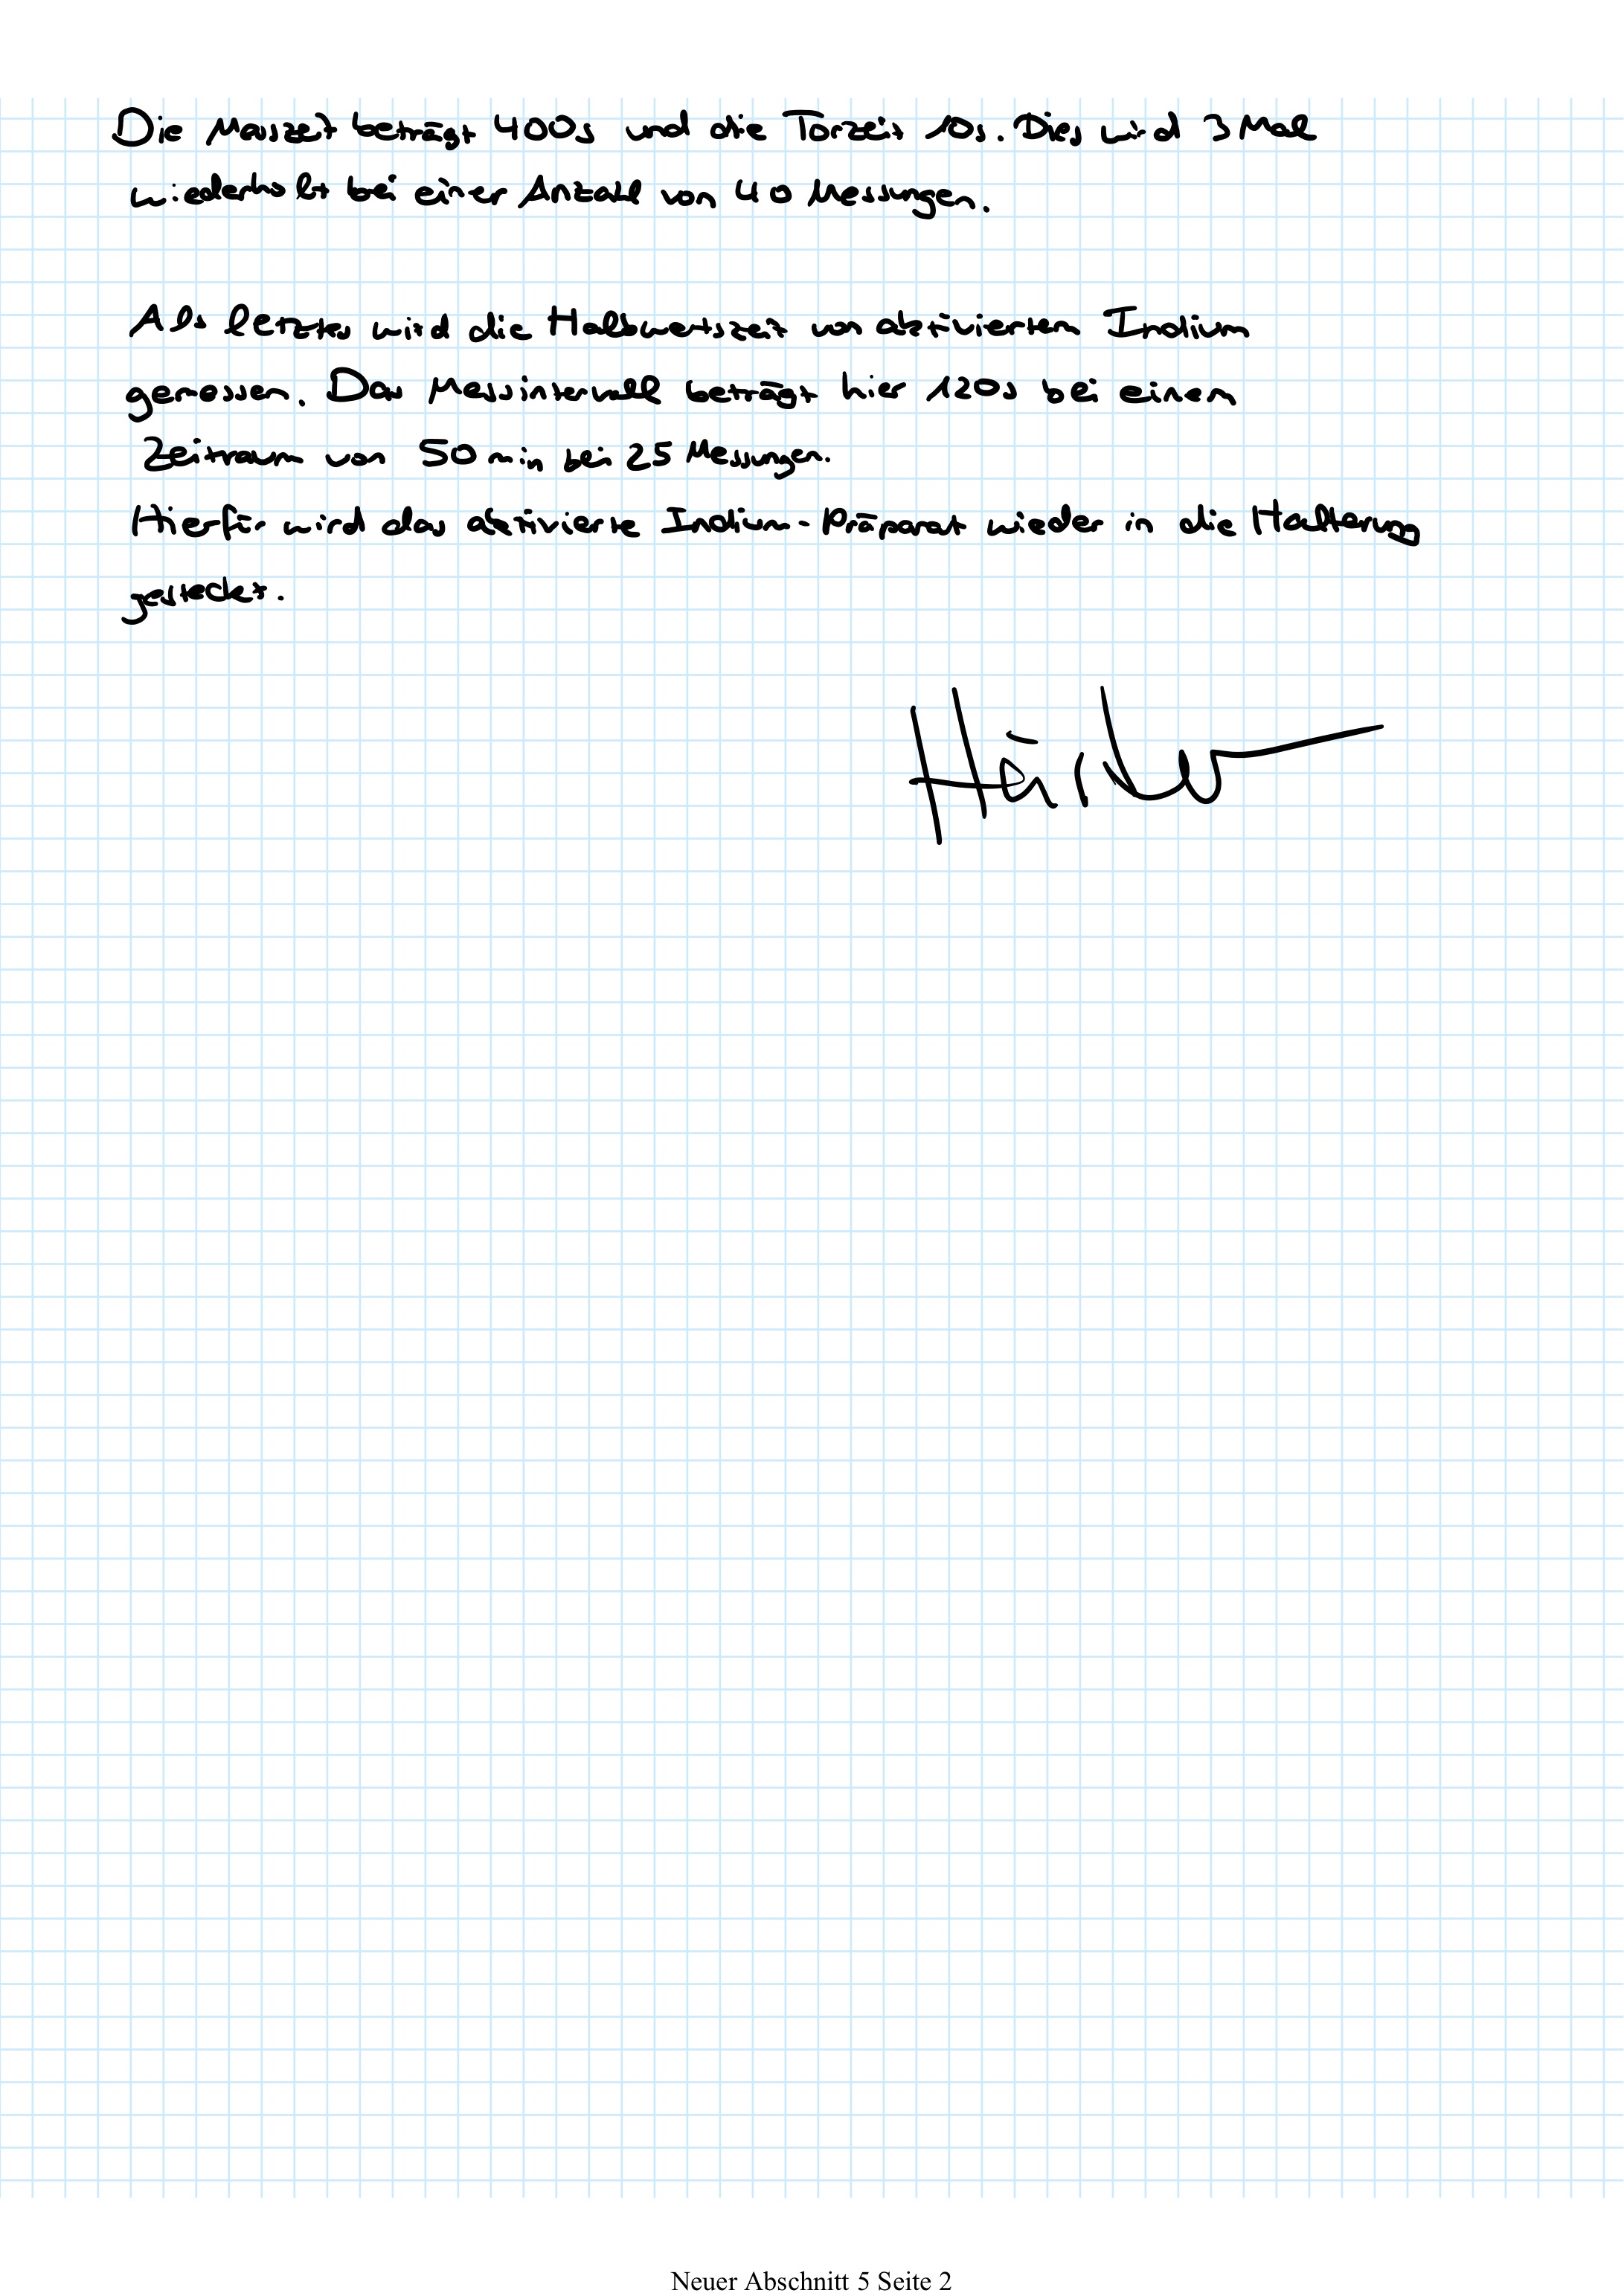 Die Messzeit beträgt 400s und die Torzeit 10s. Dies wird 3 Mal
wiederholt bei einer Anzahl von 40 Messungen.
Als letztes wird die Halbwertszeit von aktiviertem Indium
gemessen. Das Messintervall beträgt hier 120s bei einem
Zeitraum von 50 min bei 25 Messungen.
Hierfür wird das aktivierte Indium-Präparat wieder in die Halterung
gesteckt.
Neuer Abschnitt 5 Seite 2